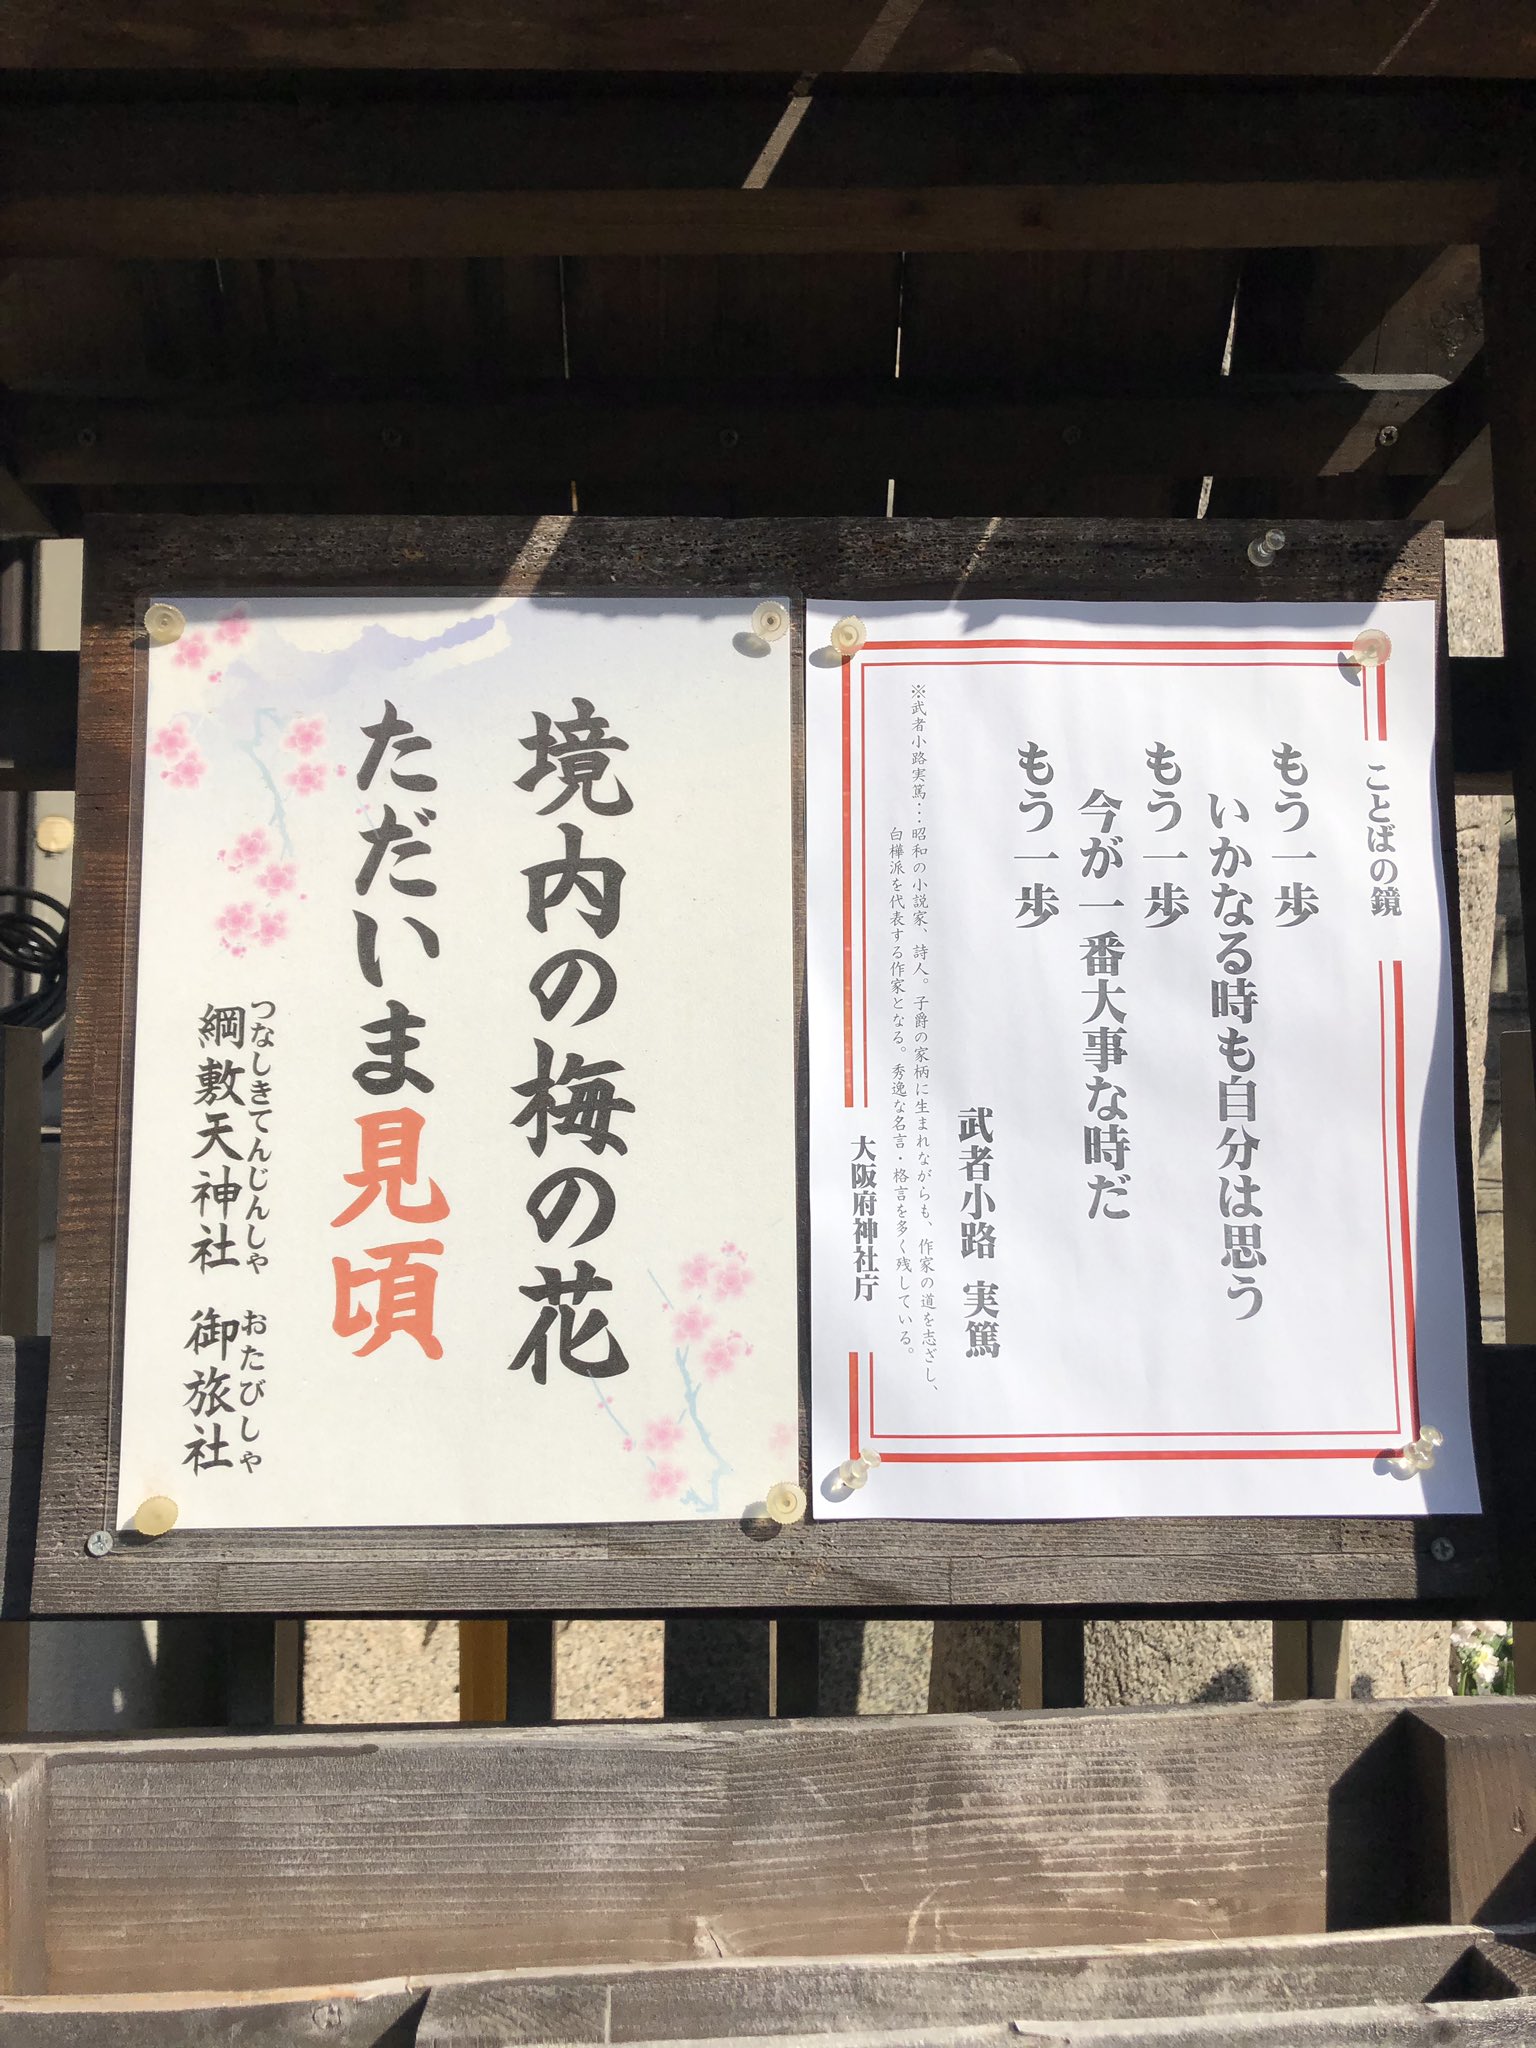 ことばの鏡
もう一歩
いかなる時も自分は思う
もう一歩
今が一番大事な時だ
もう一歩
武者小路 実篤
※武者小路実篤…昭和の小説家、詩人。子爵の家柄に生まれながらも、作家の道を志ざし、
白樺派を代表する作家となる。秀逸な名言・格言を多く残している。
大阪府神社庁
境内の梅の花
ただいま見頃
つなしきてんじんしゃ おたびしゃ
綱敷天神社 御旅社